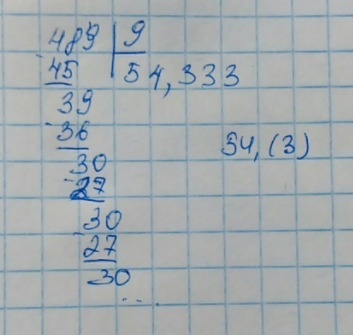 489 | 9
45 | 54,333
39
36
30 54,(3)
27
30
27
30
...